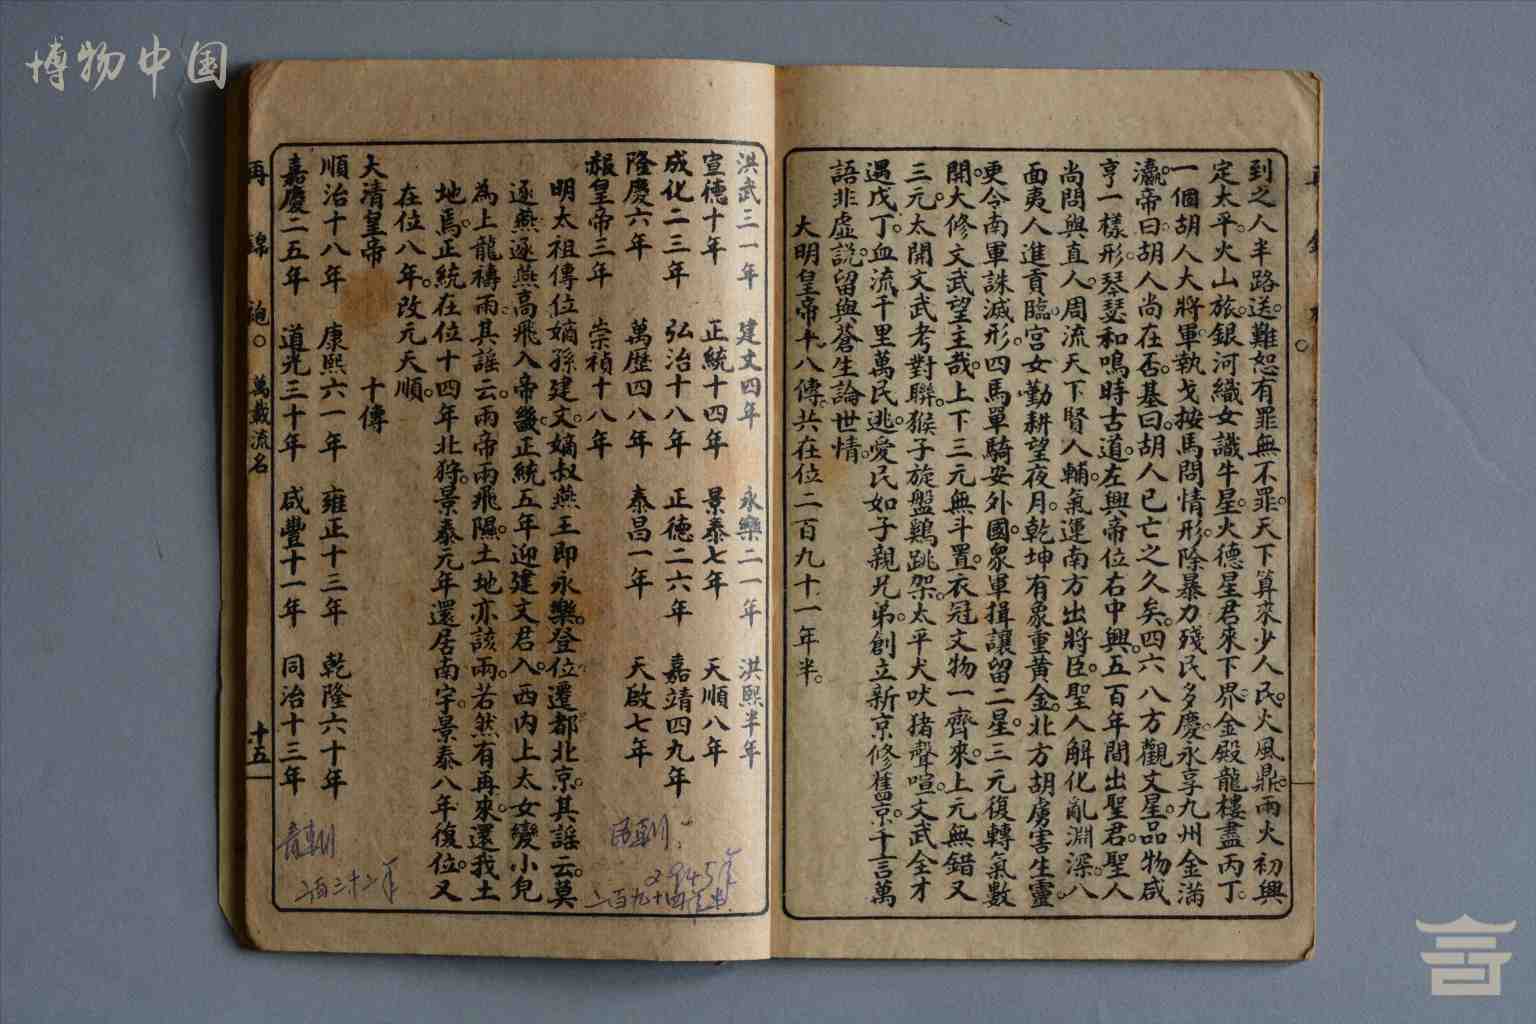 博物中国
到之人半路送。難恕有罪無不罪。天下算來少人民。火風鼎。兩火初興
定太平。火山旅。銀河織女讓牛星。火德星君來下界。金殿龍樓盡丙丁。
一個胡人大將軍。執戈按馬問情形。除暴力殘民多慶。永享九州金滿
瀛。帝曰。胡人尚在否。基曰。胡人已亡之久矣。四六八方觀文星。品物咸
亨一樣形。琴瑟和鳴時古道。左興帝位右中興。五百年間出聖君。聖人
尚問與直人。周流天下賢人輔。氣運南方出將臣。聖人解化亂淵深。八
面夷人進貢臨。宮女勤耕望夜月。乾坤有象重黃金。北方胡虜害生靈。
更令南軍誅滅形。四馬單騎安外國。眾軍揖讓留二星。三元復轉氣數
開。大修文武望主哉。上下三元無斗置。衣冠文物一齊來。上元無錯又
三元。太開文武考對聯。猴子旋盤鷄跳架。太平犬吠猪聲喧。文武全才
遇戊丁。血流千里萬民逃。愛民如子親兄弟。創立新京修舊京。千言萬
語非虛說。留與蒼生論世情。
大明皇帝十八傳共在位二百九十一年半。
洪武三一年 建文四年 永樂二一年 洪熙半年
宣德十年 正統十四年 景泰七年 天順八年
成化二三年 弘治十八年 正德二六年 嘉靖四九年
隆慶六年 萬歷四八年 泰昌一年 天啟七年
赧皇帝三年 崇禎十八年
明太祖傳位嫡孫建文。嫡叔燕王即永樂。登位遷都北京。其謠云。莫
逐燕。逐燕高飛入帝畿。正統五年迎建文君入。西內上太女變小皃
為上龍禱雨。其謠云。雨帝雨飛隰。土地亦該雨。若然有再來。還我土
地焉。正統在位十四年北狩。景泰元年還居南字。景泰八年復位。又
在位八年。改元天順。
大清皇帝 十傳
順治十八年 康熙六一年 雍正十三年 乾隆六十年
嘉慶二五年 道光三十年 咸豐十一年 同治十三年
再 錦 袍。 萬載流名 十五
2945年
二百九十四年半
二百三十二年